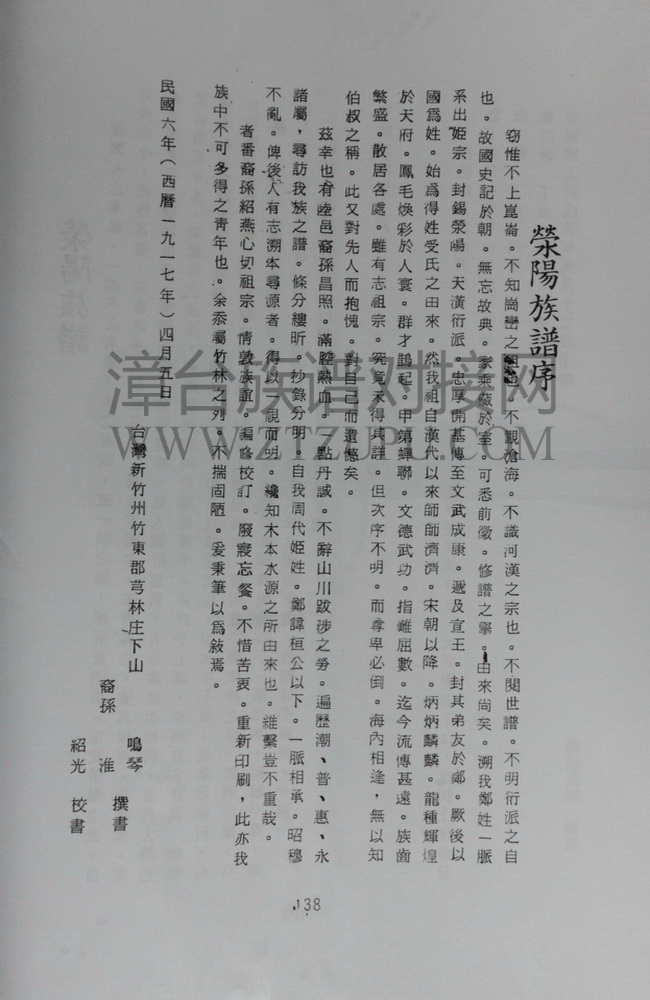 滎陽族譜序
竊惟不上崑崙。不知崗巒之 不觀滄海。不識河漢之宗也。不閱世譜。不明衍派之自
也。故國史記於朝。無忘故典。家乘藏於室。可悉前徽。修譜之舉。由來尚矣。溯我鄭姓一脈
系出姬宗。封錫滎陽。天潢衍派。忠厚開基傳至文武成康。遞及宣王。封其弟友於鄭。厥後以
國爲姓。始爲得姓受氏之由來。然我祖自漢代以來師師濟濟。宋朝以降。炳炳麟麟。龍種輝煌
於天府。鳳毛煥彩於人寰。群才鵲起。甲第蟬聯。文德武功。指難屈數。迄今流傳甚遠。族齒
繁盛。散居各處。雖有志祖宗。究竟未得其詳。但次序不明。而尊卑必倒。海內相逢，無以知
伯叔之稱。此又對先人而抱愧。對自己而遺憾矣。
茲幸也有陸邑裔孫昌照。滿腔熱血。一點丹誠。不辭山川跋涉之勞。遍歷潮、普、惠、永
諸屬，尋訪我族之譜。條分縷晰。抄錄分明。自我周代姬姓。鄭諱桓公以下。一脈相承。昭穆
不亂。俾後人有志溯本尋源者。得以一覩而明。纔知木本水源之所由來也。維繫豈不重哉。
者番裔孫紹燕心切祖宗。情敦族誼。編修校訂。廢寢忘餐。不惜苦衷。重新印刷，此亦我
族中不可多得之青年也。余忝屬竹林之列。不揣固陋。爰秉筆以爲敍焉。
民國六年（西曆一九一七年）四月五日
台灣新竹州竹東郡芎林庄下山
裔孫
鳴琴 撰書
淮
紹光 校書
138
漳台族谱对接网
WWW.ZTZUPU.COM